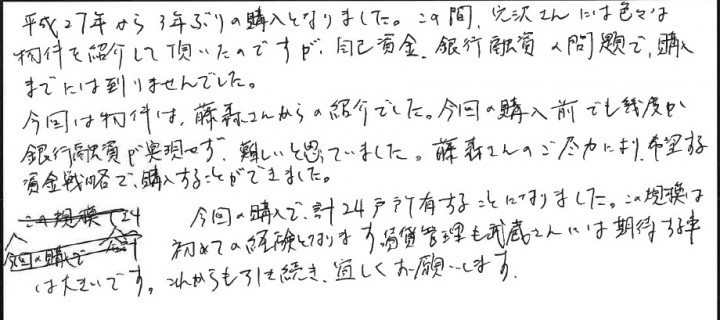 平成27年から3年ぶりの購入となりました。この間、宍沢さんには色々な
物件を紹介して頂いたのですが、自己資金、銀行融資の問題で、購入
までには到りませんでした。
今回は物件は、藤森さんからの紹介でした。今回の購入前でも幾度か
銀行融資が実現せず、難しいと思っていました。藤森さんのご尽力により、希望する
資金戦略で、購入することができました。
この規模で24
今回の購入で、計24戸所有することになりました。この規模は
今回の購入で 合計
初めての経験となります。賃貸管理も武蔵さんには期待する事
は大きいです。これからも引き続き、宜しくお願いします。